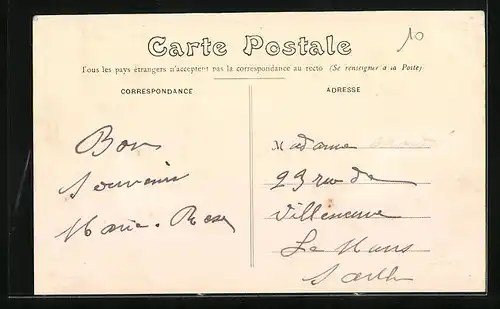 10
Carte Postale
Tous les pays étrangers n'acceptent pas la correspondance au recto (Se renseigner à la Poste)
CORRESPONDANCE
ADRESSE
Bon
Souvenir
Marie-Rose
Madame
93 rue de
Villeneuve
Le Mans
Sarthe